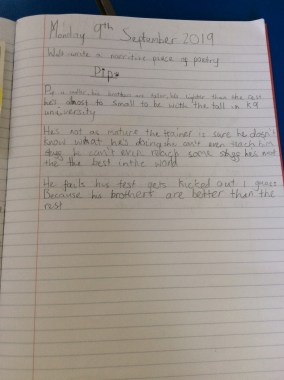 Monday 9th September 2019
Walt: write a narrative piece of poetry
Pip
his brothers are better than the rest
he's almost to small to be with the tall in K9
university
He's not as mature the trainer is sure he doesn't
know what he's doing he can't even reach his
he can't even reach some stgg he's not
the the best in the world
He fails his test gets kicked out I guess
Because his brothers are better than the
rest